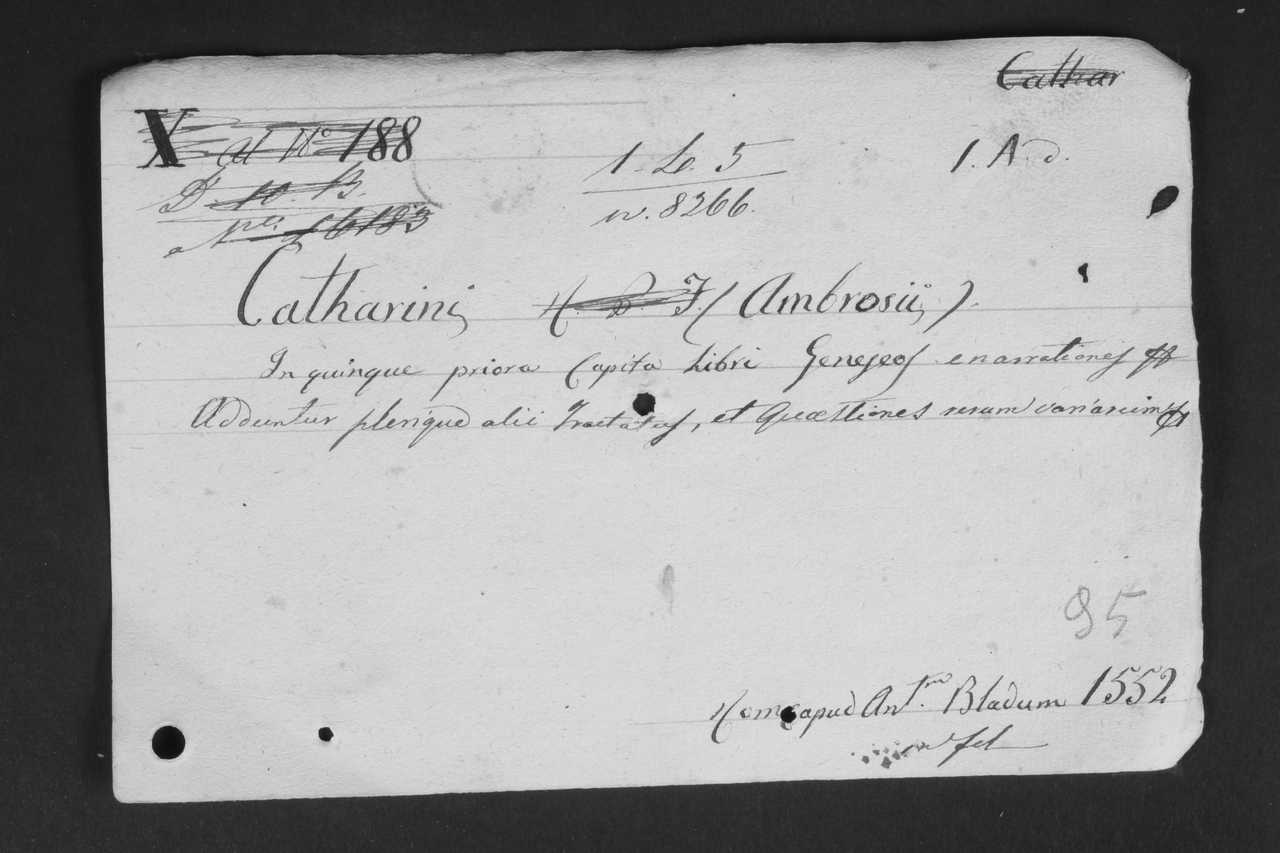 Cathar
X al Nº 188
1. Le. 5
1. A. d.
D. 10. B.
n. 8266.
Nº. 16183
Catharini (Ambrosii).
In quinque priora Capita Libri Geneseos enarrationes
Adduntur plerique alii Tractatus, et Quæstiones rerum variarum
95
Romæ apud Ant.m Bladum 1552
in fol